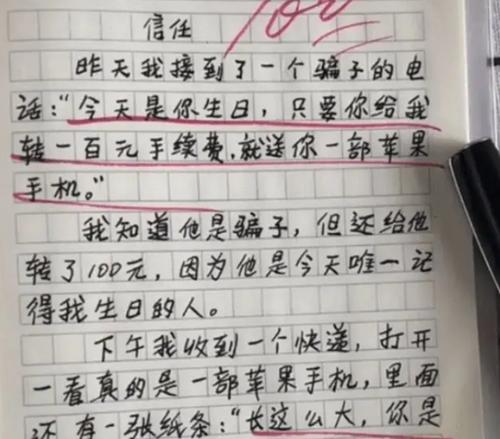 100
信任
昨天我接到了一个骗子的电
话：“今天是你生日，只要你给我
转一百元手续费，就送你一部苹果
手机。”
我知道他是骗子，但还给他
转了100元，因为他是今天唯一记
得我生日的人。
下午我收到一个快递，打开
一看真的是一部苹果手机，里面
还有一张纸条：“长这么大，你是